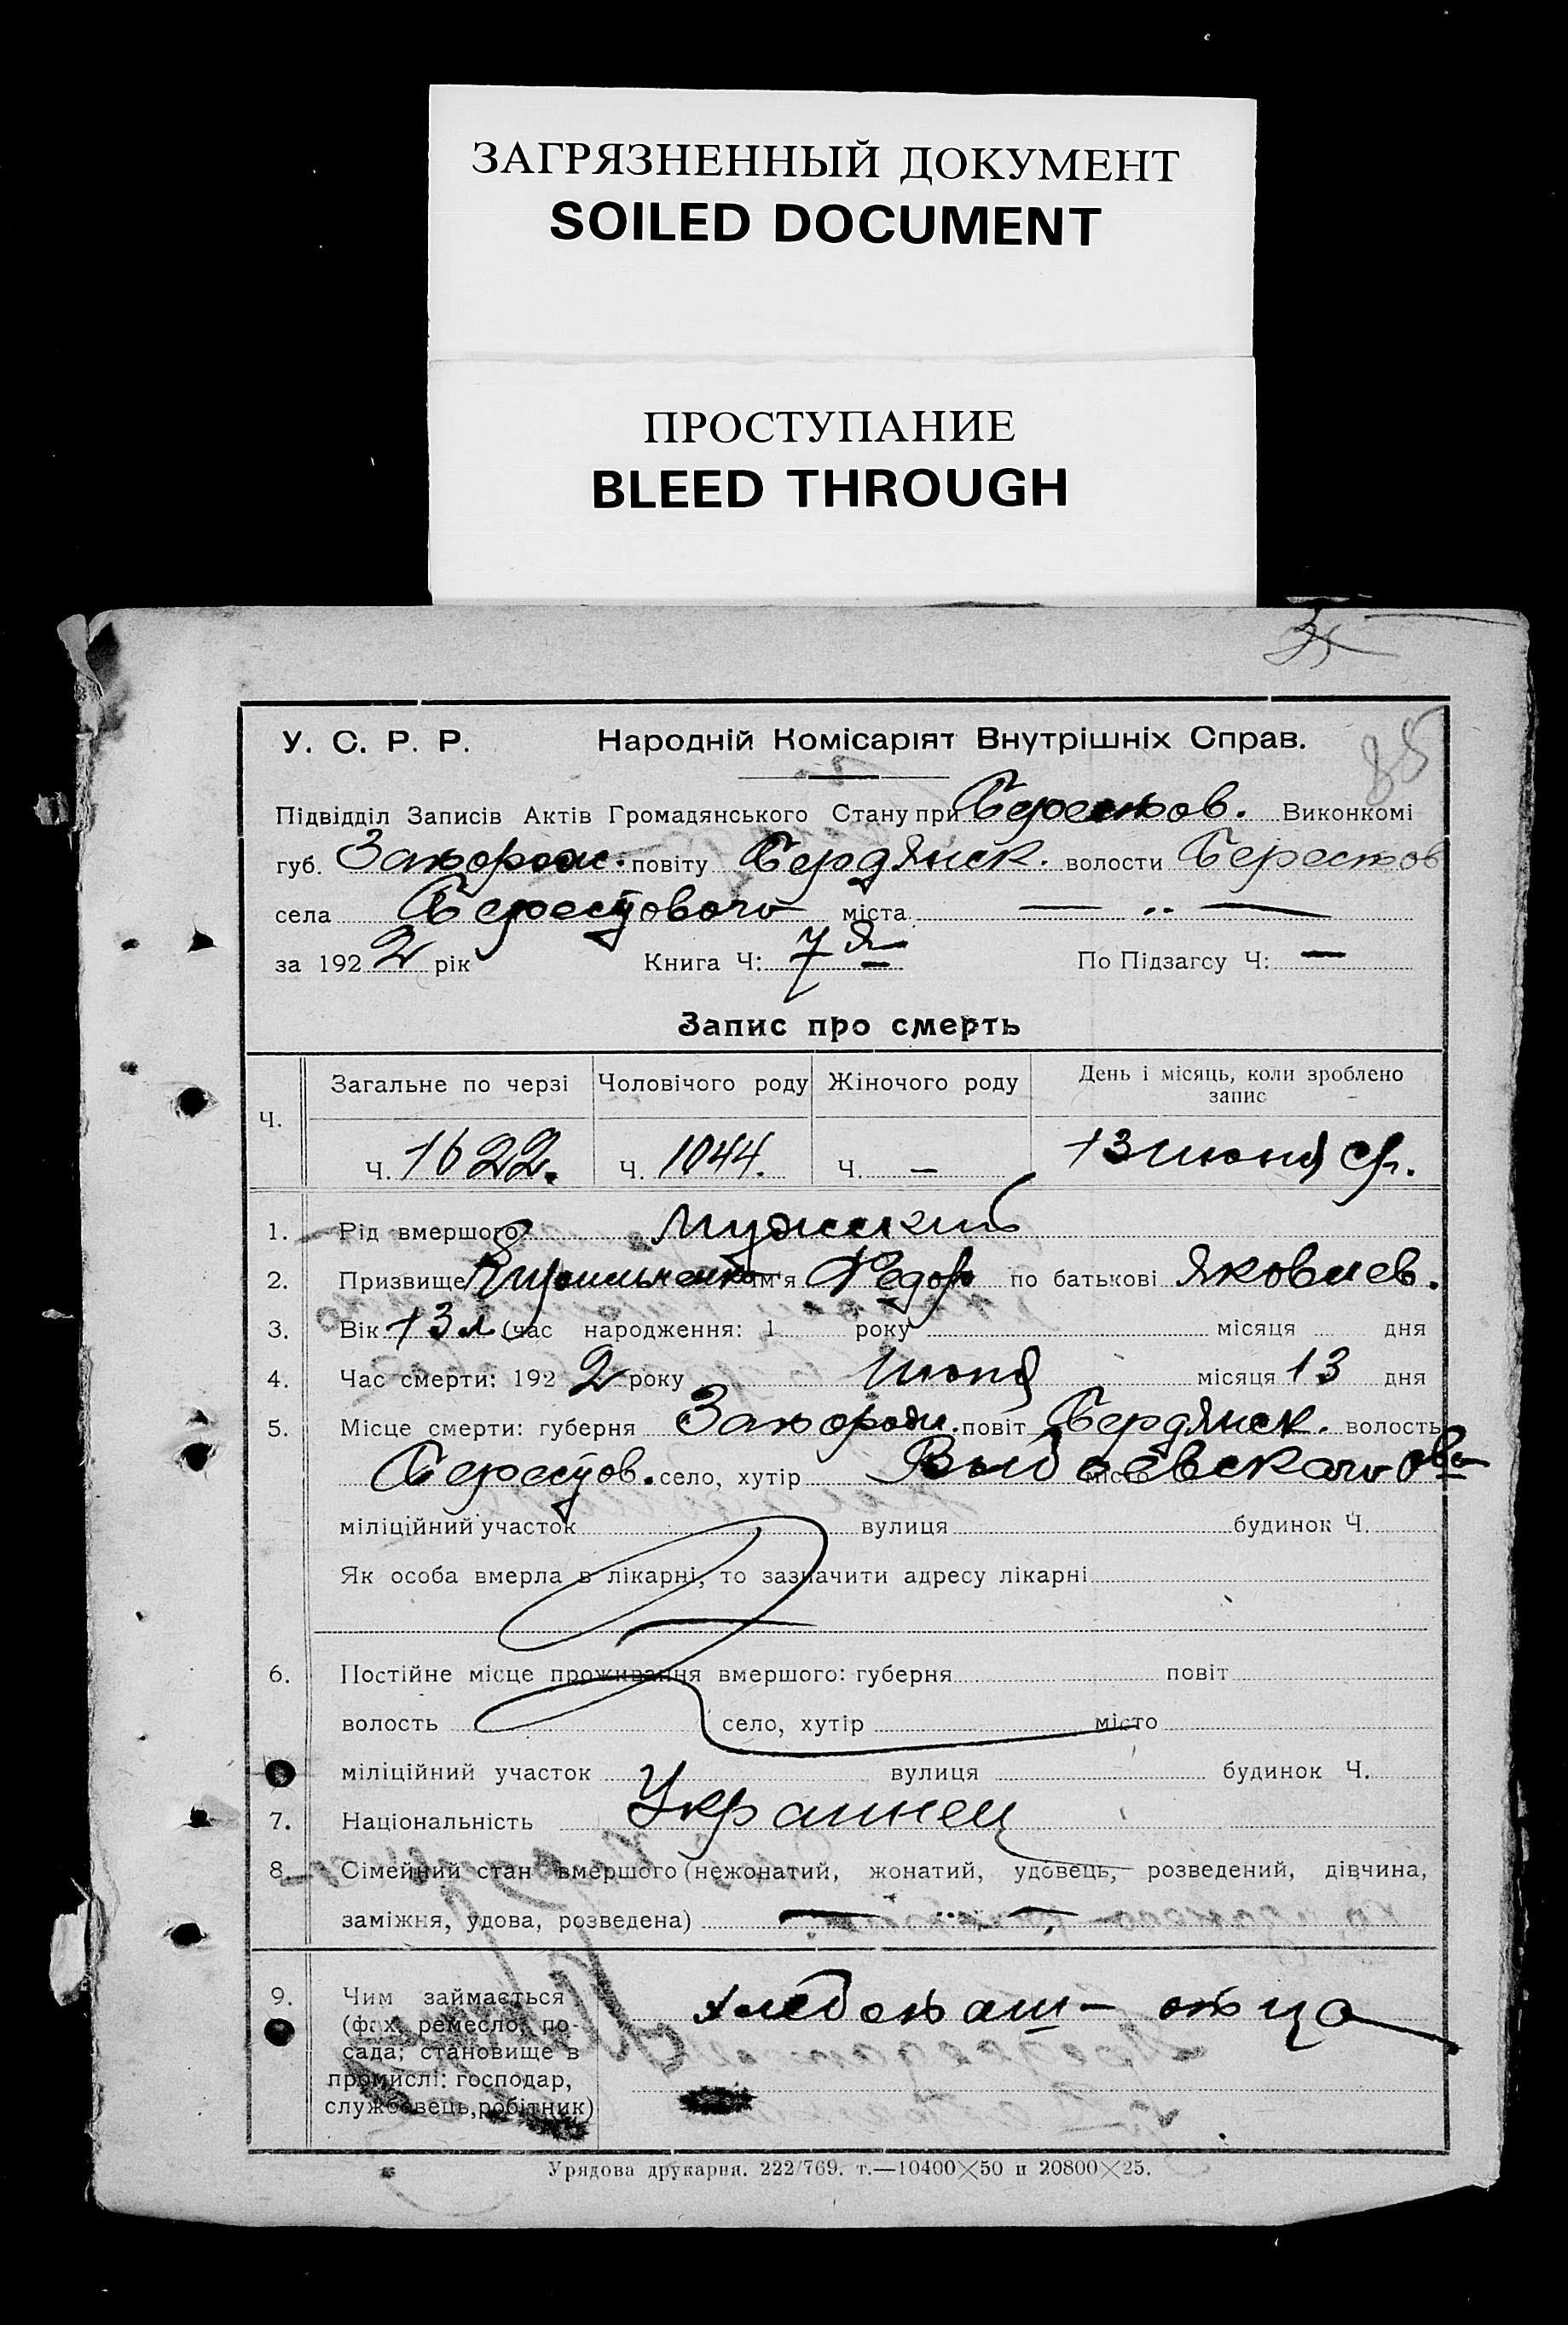 ЗАГРЯЗНЕННЫЙ ДОКУМЕНТ
SOILED DOCUMENT
ПРОСТУПАНИЕ
BLEED THROUGH
85
У. С. Р. Р. Народній Комісаріят Внутрішніх Справ.
Підвідділ Записів Актів Громадянського Стану при Берестов. Виконкомі
губ. Запорож. повіту Бердянск. волости Берестов
села Берестового міста — „ —
за 1922 рік Книга Ч: 7я По Підзагсу Ч: —
Запис про смерть
Ч. Загальне по черзі Чоловічого роду Жіночого роду День і місяць, коли зроблено
запис
Ч. 1622. Ч. 1044. Ч. — 13 июня
1. Рід вмершого: мужский
2. Призвище ім'я Федор по батькові Яковлев.
3. Вік 13 л (час народження: 1 року місяця дня
4. Час смерти: 1922 року Июня місяця 13 дня
5. Місце смерти: губерня Запорож. повіт Бердянск. волость
Берестов. село, хутір місто
міліційний участок вулиця будинок Ч.
Як особа вмерла в лікарні, то зазначити адресу лікарні
6. Постійне місце проживання вмершого: губерня повіт
волость село, хутір місто
міліційний участок вулиця будинок Ч.
7. Національність Украинец
8. Сімейний стан вмершого (нежонатий, жонатий, удовець, розведений, дівчина,
заміжня, удова, розведена) — „ —
9. Чим займається хлебопаш— отца
(фах, ремесло, по-
сада; становище в
промислі: господар,
службовець, робітник)
Урядова друкарня. 222/769. т.—10400×50 и 20800×25.